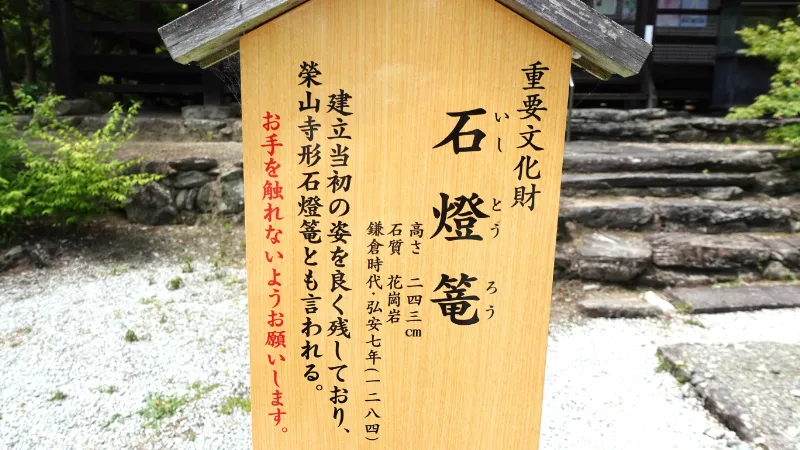 重要文化財
石燈篭
いしとうろう
高さ 二四三cm
石質 花崗岩
鎌倉時代・弘安七年(一二八四)
建立当初の姿を良く残しており、
榮山寺形石燈篭とも言われる。
お手を触れないようお願いします。